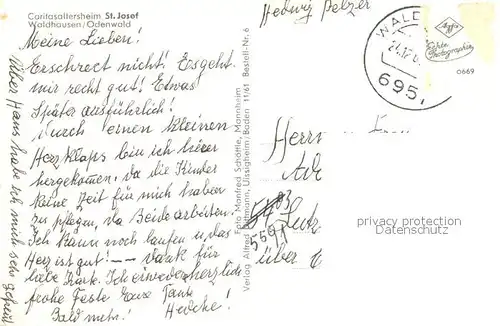 Caritasaltersheim St. Josef
Waldhausen/Odenwald
Meine Lieben!
Erschreckt nicht! Es geht
mir recht gut! Etwas
später ausführlich!
Durch einen kleinen
Herzklaps bin ich hier
hergekommen, da die Kinder
keine Zeit für mich haben
zu pflegen, da Beide arbeiten.
Ich kann noch laufen u. das
Herz ist gut! -- Dank für
liebe Karte. Ich erwidere herzlich
frohe Feste Eure Tante
Bald mehr! Hedche!
Über Hans habe ich mich sehr gefreut
Foto Manfred Schäffle, Mannheim
Verlag Alfred Uissigheim/Baden 11/61 Bestell-Nr. 6
Hedwig Pelzer
WALD
24.12.
695
Agfa
Echte
Photographie
0669
Herrn
über
privacy protection
Datenschutz